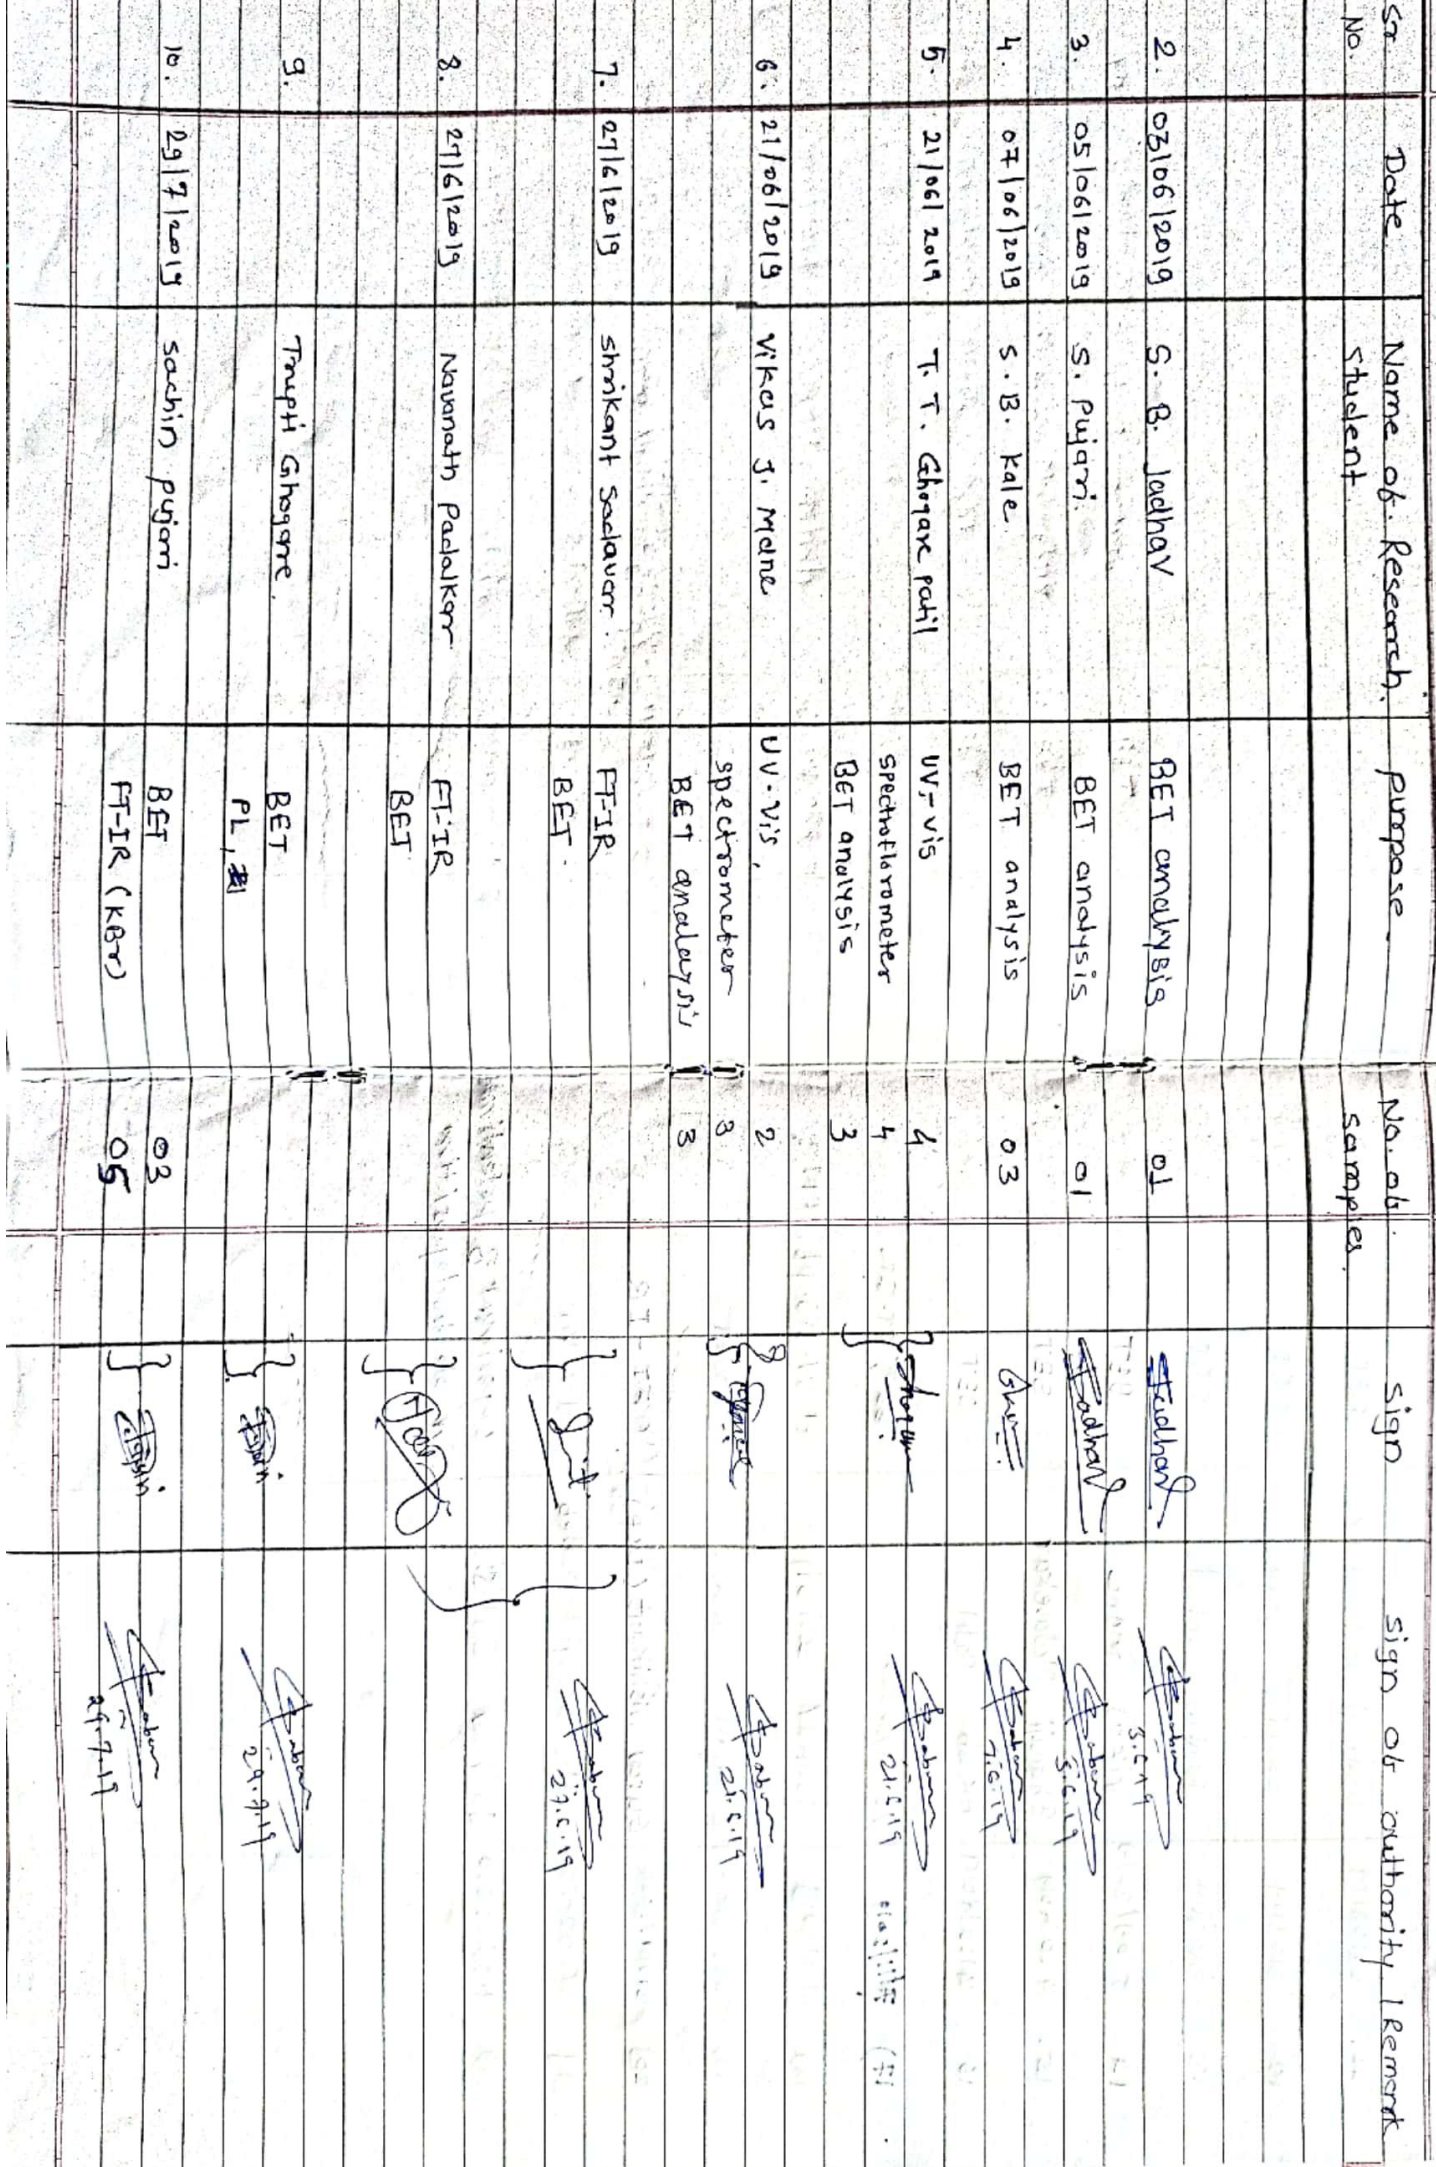 Sr. Date Name of Research purpose No. of sign sign of authority / Remark
No. student samples
2. 03/06/2019 S. B. Jadhav BET analysis 01 Jadhav 3.6.19
3. 05/06/2019 S. Pujari. BET analysis 01 Jadhav 5.6.19
4. 07/06/2019 S. B. Kale BET analysis 03 7.6.19
5. 21/06/2019 T. T. Ghogare patil UV-vis 4
spectroflorometer 4 21.6.19
BET analysis 3
6. 21/06/2019 Vikas J. Mane UV-Vis, 2
spectrometer 3 21.6.19
BET analaysis 3
7. 27/6/2019 shrikant sadavarr. FT-IR
BET. 27.6.19
8. 27/6/2019 Navanath Padalkarr FT-IR
BET
9. Trupti Ghogarre. BET
PL, 29.7.19
10. 29/7/2019 sachin pujarri BET 03
FT-IR (KBr) 05 29.7.19